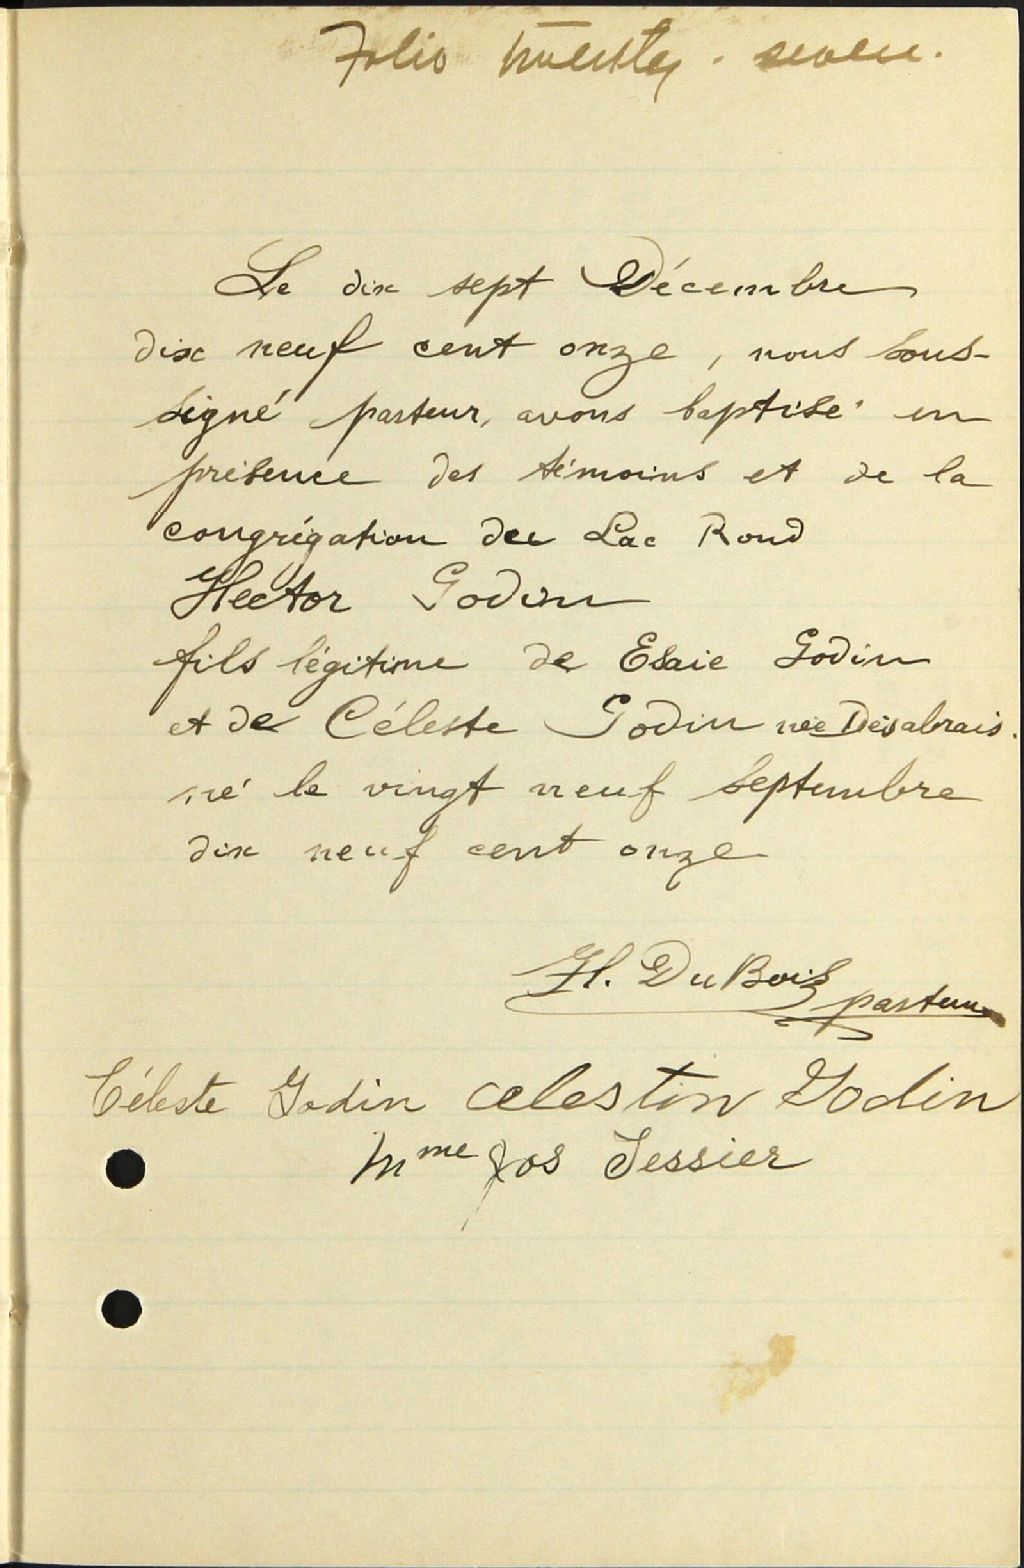 Folio twenty. seven.
Le dix sept Décembre
dix neuf cent onze, nous sous-
signé pasteur, avons baptisé en
présence des témoins et de la
congrégation du Lac Rond
Hector Godin
fils légitime de Esaie Godin
et de Céleste Godin née Désabrais.
né le vingt neuf septembre
dix neuf cent onze
H. DuBois pasteur
Céleste Godin celestin Godin
Mme Jos Tessier